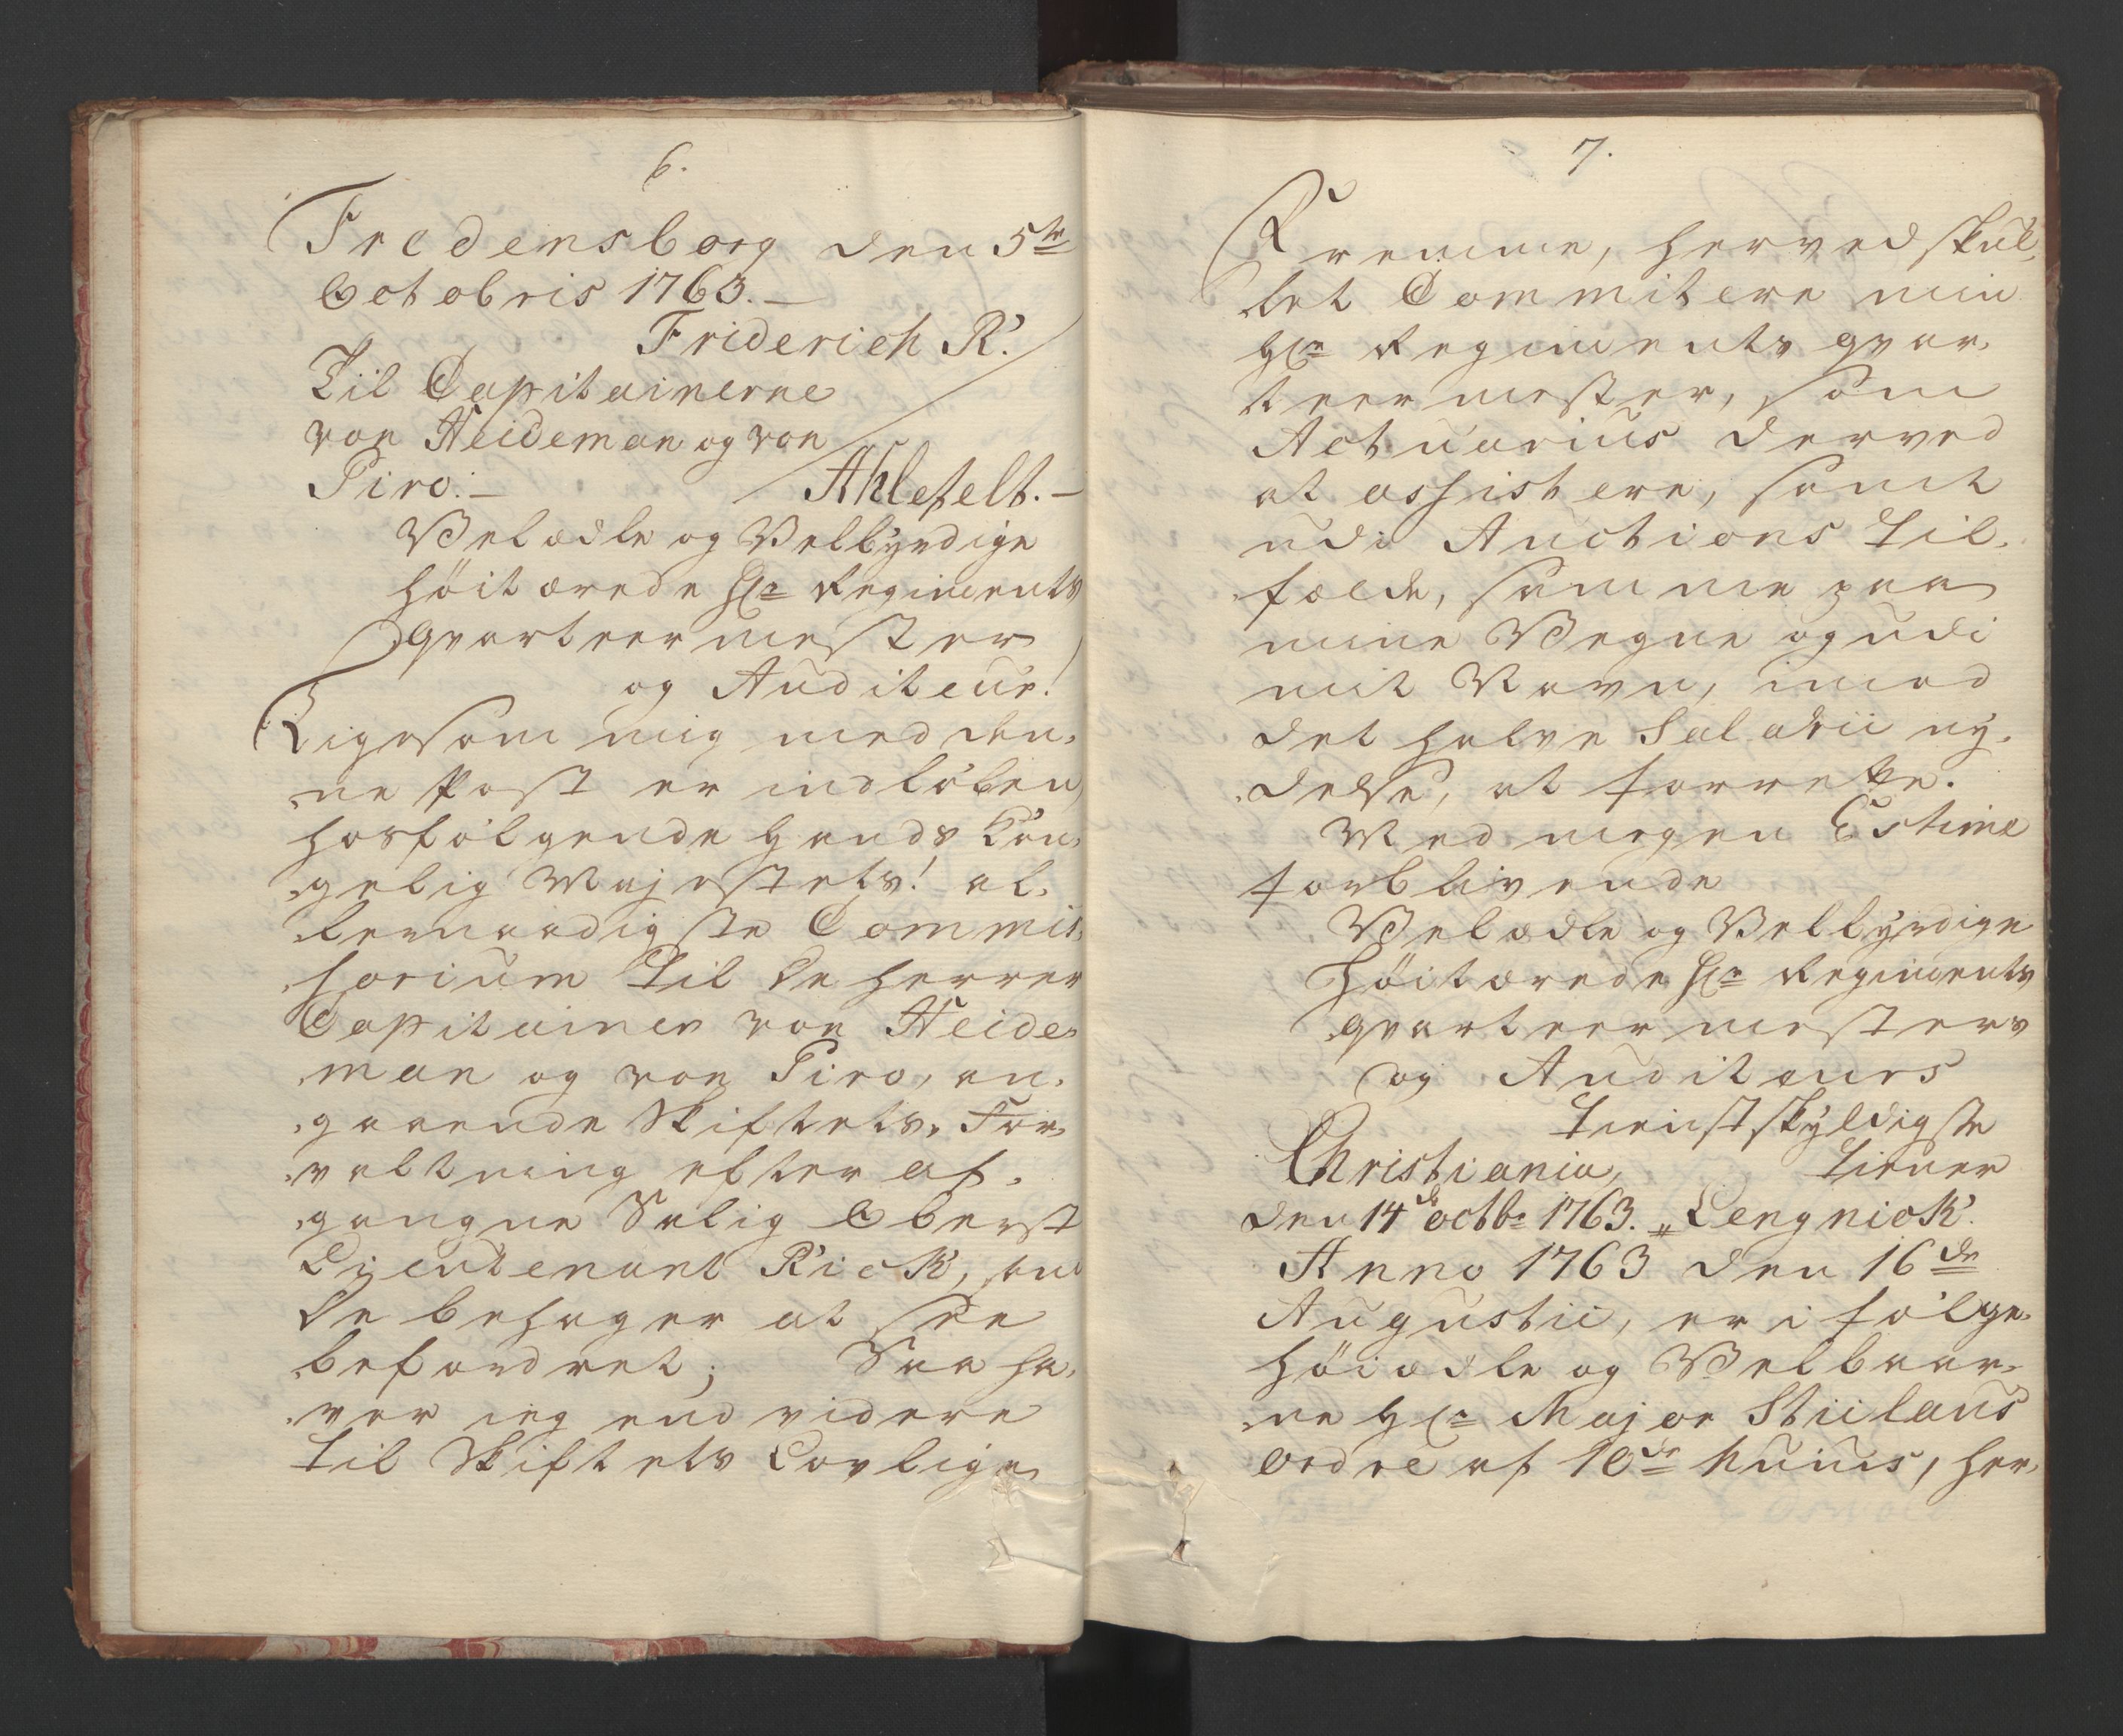 6.
Fredensborg den 5te
Octobris 1763. —
Friderich R.
Til Capitainerne
von Heideman og von
Piro. —
Ahlefelt. —
Velædle og Velbÿrdige
Höitærede Hr. Regiments
qvarteermester
og Auditeur!
Ligesom mig med den,
,ne Post er indlöben
hosfölgende Hands Kon,
,gelig Majestets! al,
,lernaadigste Commis,
,sorium til de Herrer
Capitainer von Heide,
,man og von Piro, an,
,gaaende Skiftets For,
,valtning efter af,
,gangne Salig Oberst
Lieutenant Rick, som
de behager at see
befordret; Saa ha,
,ver ieg end videre
til Skiftets Lovlige
7.
Fremme, herved skul,
,let Committere min
Hr. Regiments qvar,
,teermester, som
Actuarius derved
at assistere, samt
udi Auctions Til,
,fælde, samme paa
mine Vegne og udi
mit Navn, imod
det halve Salarii nÿ,
,delse, at forrette.
Med megen Estime
forblivende
Velædle og Velbÿrdige
Höitærede Hr. Regiments
qvarteermesters
og Auditeurs
tienstskÿldigste
Christiania,
tiener
den 14de octbr 1763. „ Lengnick.
Anno 1763 den 16de
Augustii, er i fölge
Höiædle og Velbaar,
,ne Hr. Major Stiilaus
Ordre af 10de huius, her,